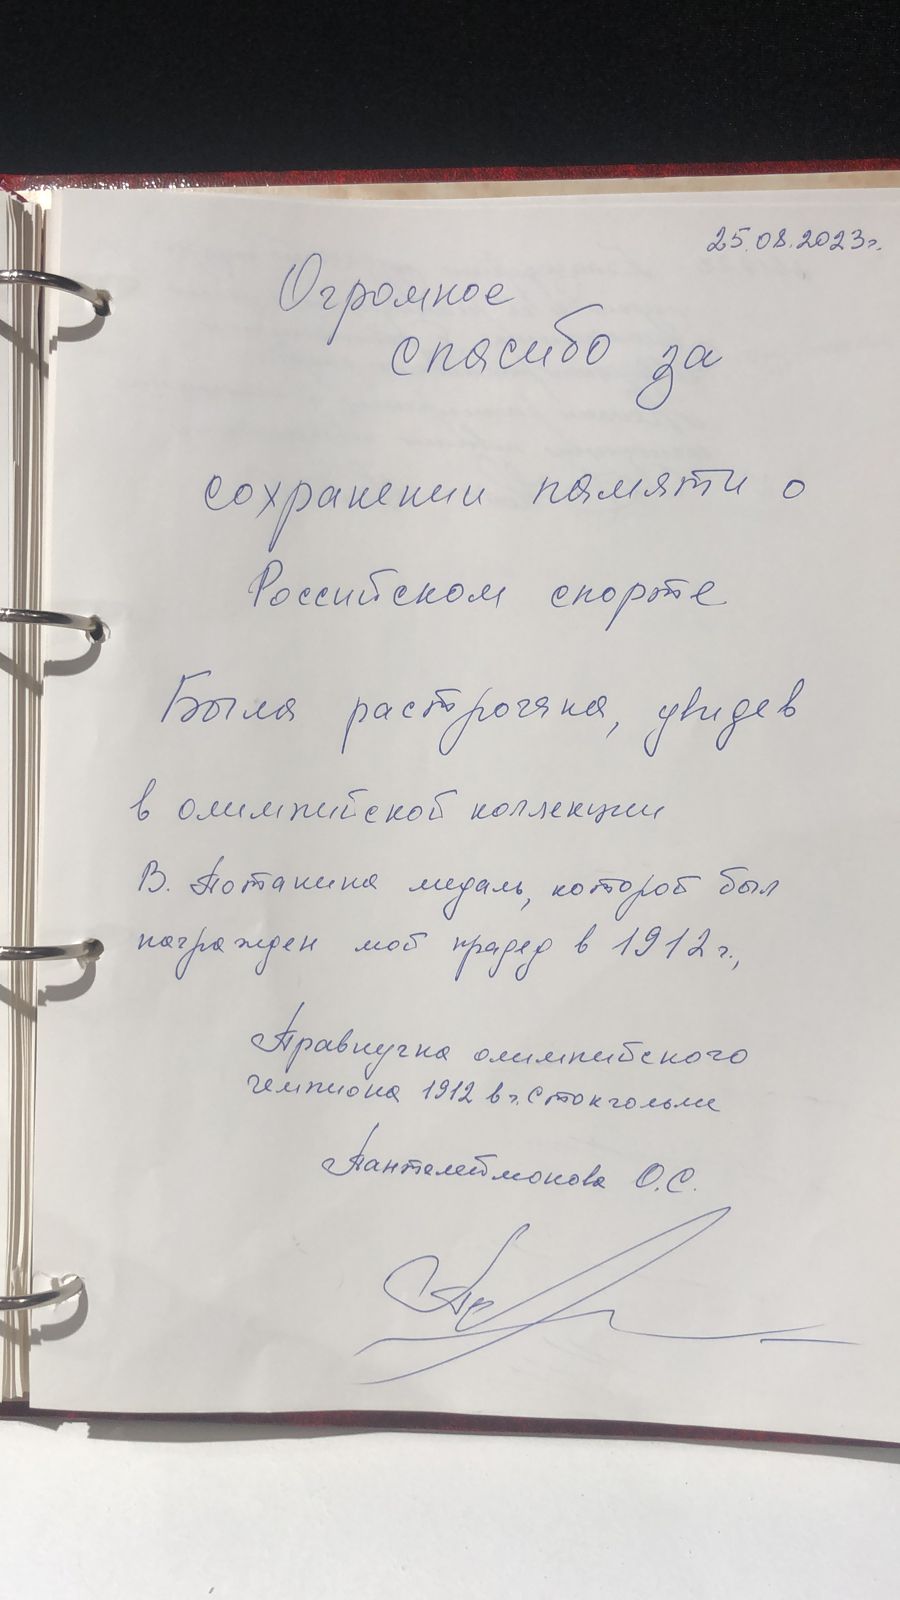 25.08.2023г.
Огромное
спасибо за
сохранении памяти о
Российском спорте
Была растрогана, увидев
в олимпийской коллекции
В. Потанина медаль, которой был
награжден мой прадед в 1912 г.,
Правнучка олимпийского
чемпиона 1912 в г. Стокгольме
Пантелеймонова О.С.